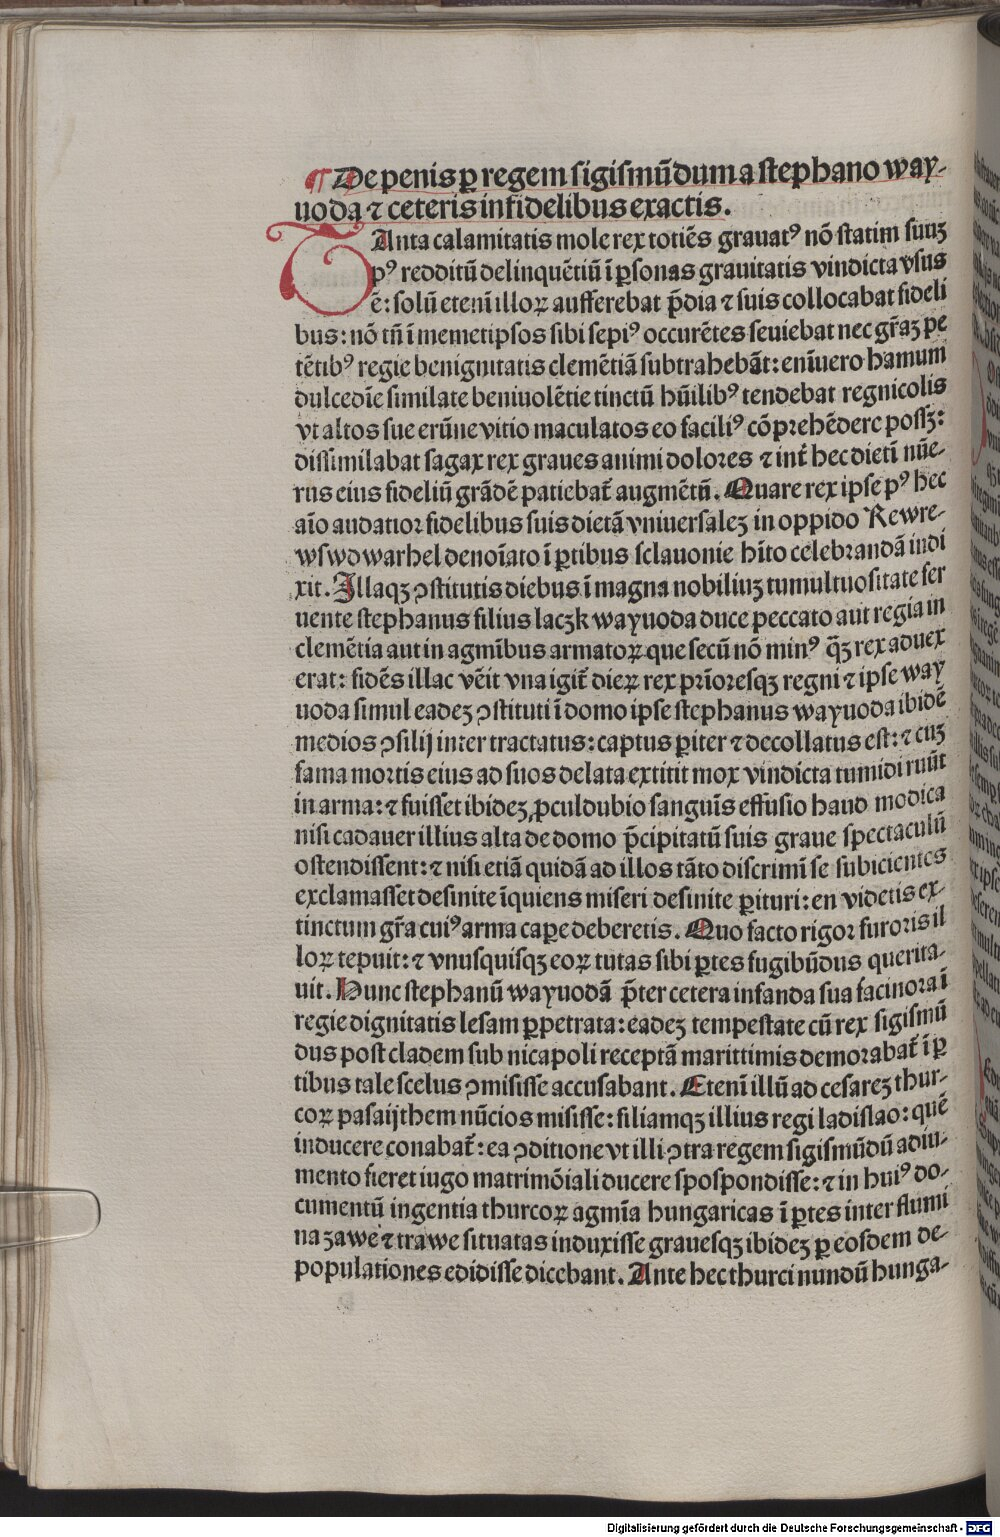 ¶ De penis ꝑ regem ſigiſmūdum a ſtephano way-
uoda ⁊ ceteris infidelibus exactis.
TAnta calamitatis mole rex totiēs grauatꝰ nō ſtatim ſuuꝫ
pꝰ redditū delinquētiū ī ꝑſonas grauitatis vindicta vſus
ē: ſolū etenī illoꝝ aufferebat p̄dia ⁊ ſuis collocabat fideli
bus: nō tn̄ ī memetipſos ſibi ſepiꝰ occurētes ſeuiebat nec gr̄aꝫ pe
tētibꝰ regie benignitatis clemētiā ſubtrahebāt: enīuero hamum
dulcedīe ſimilate beniuolētie tinctū hūilibꝰ tendebat regnicolis
vt altos ſue erūne vitio maculatos eo faciliꝰ cōprehēderc poſſꝫ:
diſſimilabat ſagax rex graues animi dolores ⁊ int̄ hec dietī nūe-
rus eius fideliū grādē patiebat̄ augmētū. Quare rex ipſe pꝰ hec
aīo audatior fidelibus ſuis dietā vniuerſaleꝫ in oppido Rewre-
wſwdwarhel denoīato ī ꝑtibus ſclauonie hīto celebrandā indi
xit. Illaqꝫ ꝯſtitutis diebus ī magna nobiliuꝫ tumultuoſitate fer
uente ſtephanus filius laczk wayuoda duce peccato aut regia in
clemētia aut in agmībus armatoꝝ que ſecū nō minꝰ qꝫ̄ rex aduex
erat: fidēs illac vēit vna igit̄ dieꝝ rex prīoreſqꝫ regni ⁊ ipſe way
uoda ſimul eadeꝫ ꝯſtituti ī domo ipſe ſtephanus wayuoda ibidē
medios ꝯſilij inter tractatus: captus ꝑiter ⁊ decollatus eſt: ⁊ cuꝫ
fama mortis eius ad ſuos delata extitit mox vindicta tumidi ruūt
in arma: ⁊ fuiſſet ibideꝫ ꝓculdubio ſanguīs effuſio haud modica
niſi cadauer illius alta de domo p̄cipitatū ſuis graue ſpectaculū
oſtendiſſent: ⁊ niſi etiā quidā ad illos tāto diſcrimī ſe ſubicientes
exclamaſſet deſinite īquiens miſeri deſinite ꝑituri: en videtis ex-
tinctum gr̄a cuiꝰ arma caꝑe deberetis. Quo facto rigor furoris il
loꝝ tepuit: ⁊ vnuſquiſqꝫ eoꝝ tutas ſibi ꝑtes fugibūdus querita-
uit. Hunc ſtephanū wayuodā p̄ter cetera infanda ſua facinora ī
regie dignitatis leſam ꝑpetrata: eadeꝫ tempeſtate cū rex ſigiſmū
dus poſt cladem ſub nicapoli receptā marittimis demorabat̄ ī ꝑ
tibus tale ſcelus ꝯmiſiſſe accuſabant. Etenī illū ad ceſareꝫ thur-
coꝝ paſaijthem nūcios miſiſſe: filiamqꝫ illius regi ladiſlao: quē
inducere conabat̄: ea ꝯditione vt illi ꝯtra regem ſigiſmūdū adiu-
mento fieret iugo matrimōiali ducere ſpoſpondiſſe: ⁊ in huiꝰ do-
cumentū ingentia thurcoꝝ agmīa hungaricas ī ꝑtes inter flumi
na zawe ⁊ trawe ſituatas induxiſſe graueſqꝫ ibideꝫ ꝑ eoſdem de-
populationes edidiſſe dicebant. Ante hec thurci nundū hunga-
Digitalisierung gefördert durch die Deutsche Forschungsgemeinschaft - DFG